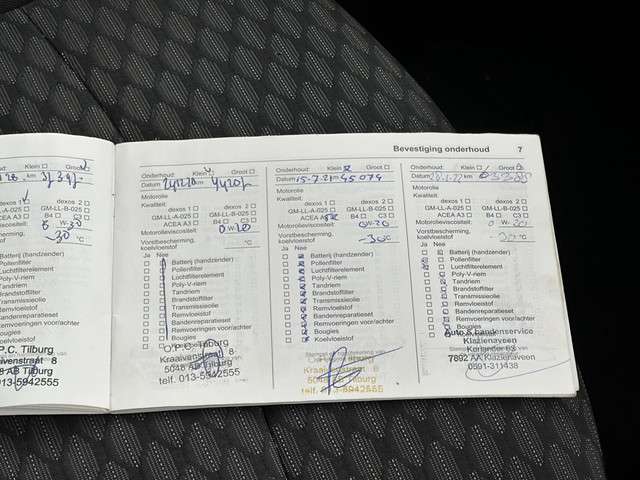 Bevestiging onderhoud 7
Klein Groot
km
dexos 1 dexos 2
GM-LL-A-025 GM-LL-B-025
ACEA A3 B4 C3
W-30
-30 °C
Batterij (handzender)
Pollenfilter
Luchtfilterelement
Poly-V-riem
Tandriem
Brandstoffilter
Transmissieolie
Remvloeistof
Bandenreparatieset
Remvoeringen voor/achter
Bougies
Koelvloeistof
P.C. Tilburg
8
AB Tilburg
013-5942555
Onderhoud: Klein Groot
Datum km
Motorolie
Kwaliteit
dexos 1 dexos 2
GM-LL-A-025 GM-LL-B-025
ACEA A3 B4 C3
Motorolieviscositeit: 0 W-20
Vorstbescherming, koelvloeistof °C
Ja Nee
Batterij (handzender)
Pollenfilter
Luchtfilterelement
Poly-V-riem
Tandriem
Brandstoffilter
Transmissieolie
Remvloeistof
Bandenreparatieset
Remvoeringen voor/achter
Bougies
Koelvloeistof
O.P.C. Tilburg
Kraaivenstraat 8
5048 AB Tilburg
telf. 013-5942555
Onderhoud: Klein Groot
Datum 15-7-21 km 45074
Motorolie
Kwaliteit
dexos 1 dexos 2
GM-LL-A-025 GM-LL-B-025
ACEA A3 B4 C3
Motorolieviscositeit: 0W-20
Vorstbescherming, koelvloeistof -30°C
Ja Nee
Batterij (handzender)
Pollenfilter
Luchtfilterelement
Poly-V-riem
Tandriem
Brandstoffilter
Transmissieolie
Remvloeistof
Bandenreparatieset
Remvoeringen voor/achter
Bougies
Koelvloeistof
5048 AB Tilburg
telf. 013-5942555
Onderhoud: Klein Groot
Datum km
Motorolie
Kwaliteit
dexos 1 dexos 2
GM-LL-A-025 GM-LL-B-025
ACEA A3 B4 C3
Motorolieviscositeit: 0 W-20
Vorstbescherming, koelvloeistof °C
Ja Nee
Batterij (handzender)
Pollenfilter
Luchtfilterelement
Poly-V-riem
Tandriem
Brandstoffilter
Transmissieolie
Remvloeistof
Bandenreparatieset
Remvoeringen voor/achter
Bougies
Auto & bandenservice
Klazienaveen
63
7892 AA Klazienaveen
0591-311438